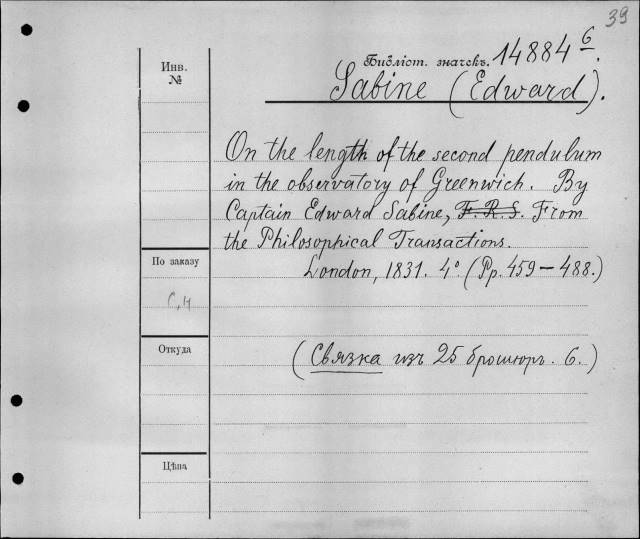 39
Библіот. значекъ. 14884 6.
Sabine (Edward).
Инв.
№
On the length of the second pendulum
in the observatory of Greenwich. By
Captain Edward Sabine, F. R. S. From
the Philosophical Transactions.
London, 1831. 4° (Pp. 459 — 488.)
По заказу
Откуда
(Связка изъ 25 брошюръ. 6.)
Цѣна